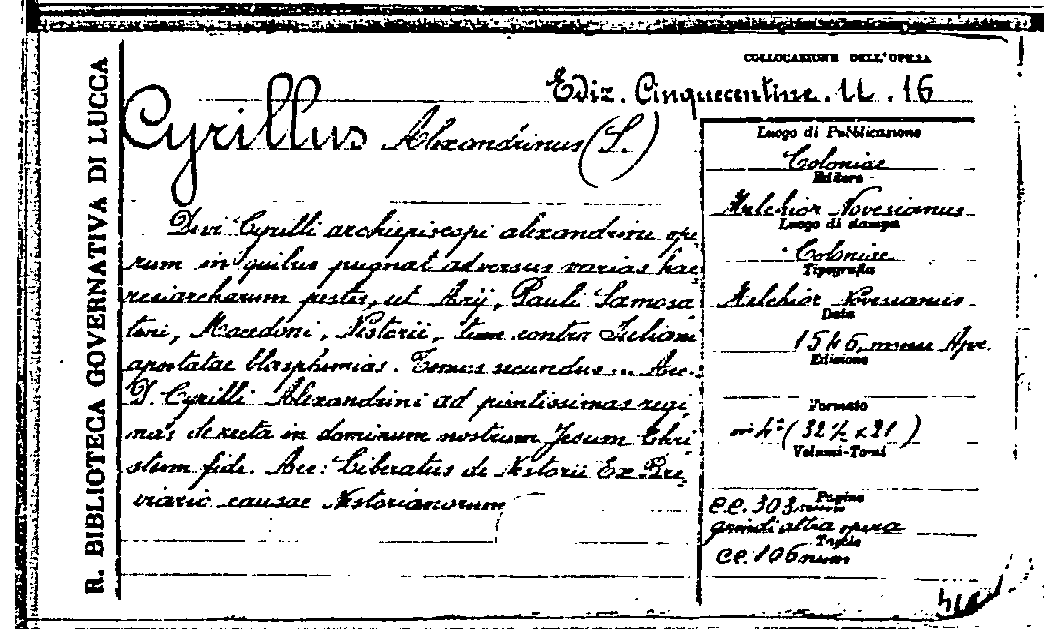 R. BIBLIOTECA GOVERNATIVA DI LUCCA
COLLOCAZIONE DELL'OPERA
Ediz. Cinquecentine. U. 16
Cyrillus Alexandrinus (S.)
Divi Cyrilli archiepiscopi alexandrini ope
rum in quibus pugnat adversus varias hae
resiarcharum pestes, ut Arij, Pauli Samosa
teni, Macedoni, Nestorii, tum contra Iuliani
apostatae blasphemias. Tomus secundus ... Acc.
D. Cyrilli Alexandrini ad pientissimas regi
nas de recta in dominum nostrum Jesum Chri
stum fide. Acc: Liberatus de Nestorii Ex Bre
viario causae Nestorianorum
Luogo di Pubblicazione
Coloniae
Editore
Melchior Novesianus
Luogo di stampa
Coloniae
Tipografia
Melchior Novesianus
Data
1546, mense Apr.
Edizione
Formato
in 4° (32½ x 21)
Volumi-Tomi
Pagine
cc. 303
quindi altra opera
Tavole
cc. 106 num